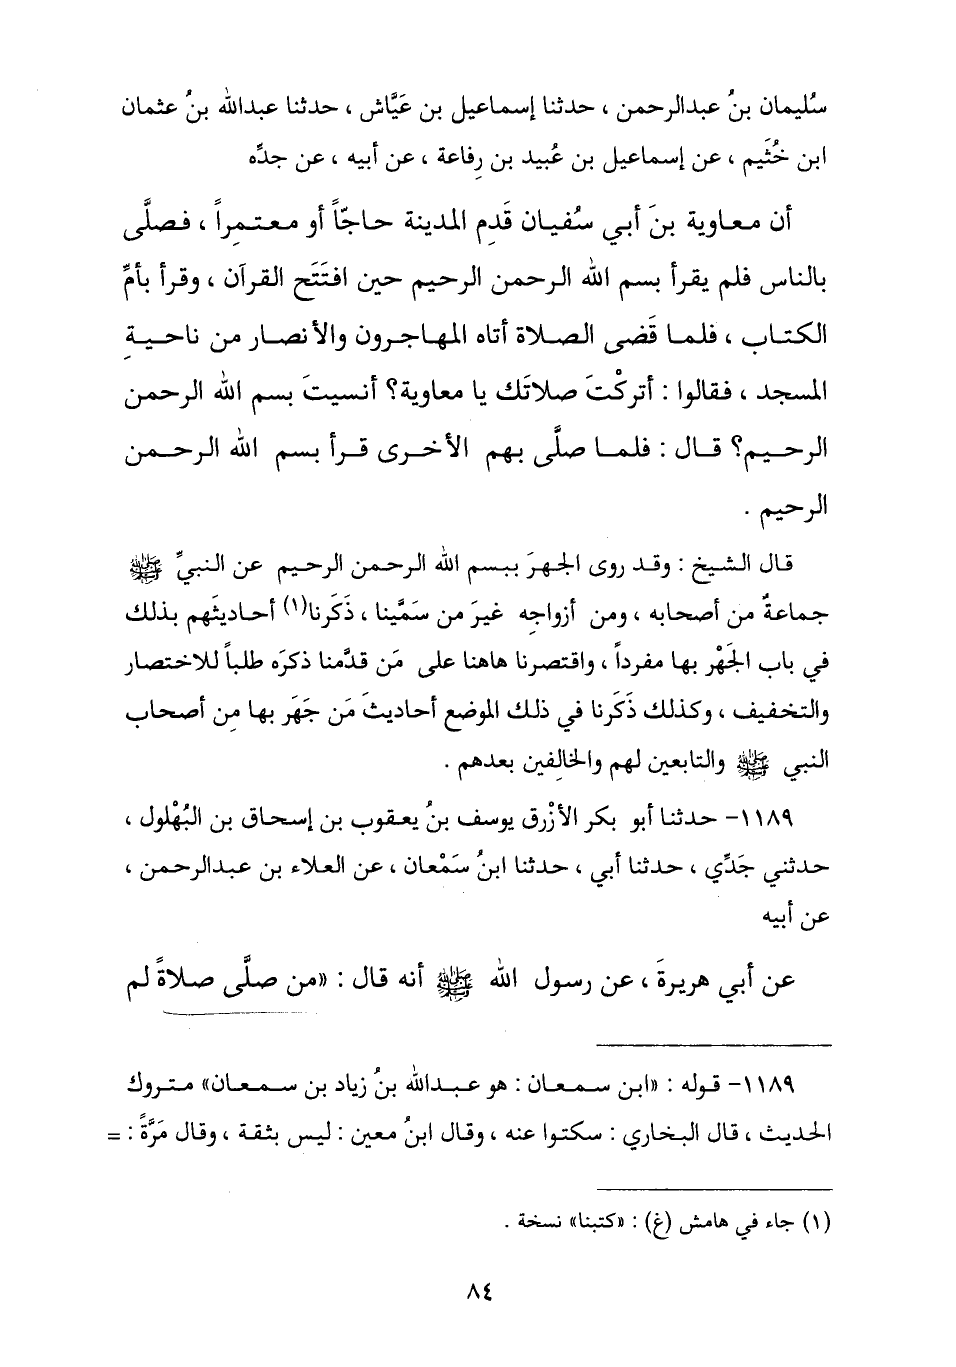 سُليمان بنُ عبدالرحمن ، حدثنا إسماعيل بن عَيَّاش ، حدثنا عبدالله بنُ عثمان
ابن خُثَيم ، عن إسماعيل بن عُبيد بن رِفاعة ، عن أبيه ، عن جدِّه
أن معاوية بنَ أبي سُفيان قَدِم المدينة حاجّاً أو معتمراً ، فصلَّى
بالناس فلم يقرأ بسم الله الرحمن الرحيم حين افتَتَح القرآن ، وقرأ بأمِّ
الكتاب ، فلما قَضى الصلاة أتاه المهاجرون والأنصار من ناحيةِ
المسجد ، فقالوا : أتركْتَ صلاتَك يا معاوية؟ أنسيتَ بسم الله الرحمن
الرحيم؟ قال : فلما صلَّى بهم الأخرى قرأ بسم الله الرحمن
الرحيم .
قال الشيخ : وقد روى الجهرَ ببسم الله الرحمن الرحيم عن النبيِّ ﷺ
جماعةٌ من أصحابه ، ومن أزواجِه غيرَ من سَمَّينا ، ذَكَرنا(١) أحاديثَهم بذلك
في باب الجَهْر بها مفرداً ، واقتصرنا هاهنا على مَن قدَّمنا ذكرَه طلباً للاختصار
والتخفيف ، وكذلك ذَكَرنا في ذلك الموضع أحاديثَ مَن جَهَر بها مِن أصحاب
النبي ﷺ والتابعين لهم والخالِفين بعدهم .
١١٨٩- حدثنا أبو بكر الأزْرق يوسف بنُ يعقوب بن إسحاق بن البُهْلول ،
حدثني جَدِّي ، حدثنا أبي ، حدثنا ابنُ سَمْعان ، عن العلاء بن عبدالرحمن ،
عن أبيه
عن أبي هريرةَ ، عن رسول الله ﷺ أنه قال : «من صلَّى صلاةً لم
١١٨٩- قوله : «ابن سمعان : هو عبدالله بنُ زياد بن سمعان» متروك
الحديث ، قال البخاري : سكتوا عنه ، وقال ابنُ معين : ليس بثقة ، وقال مَرَّةً : =
(١) جاء في هامش (غ) : «كتبنا» نسخة .
٨٤